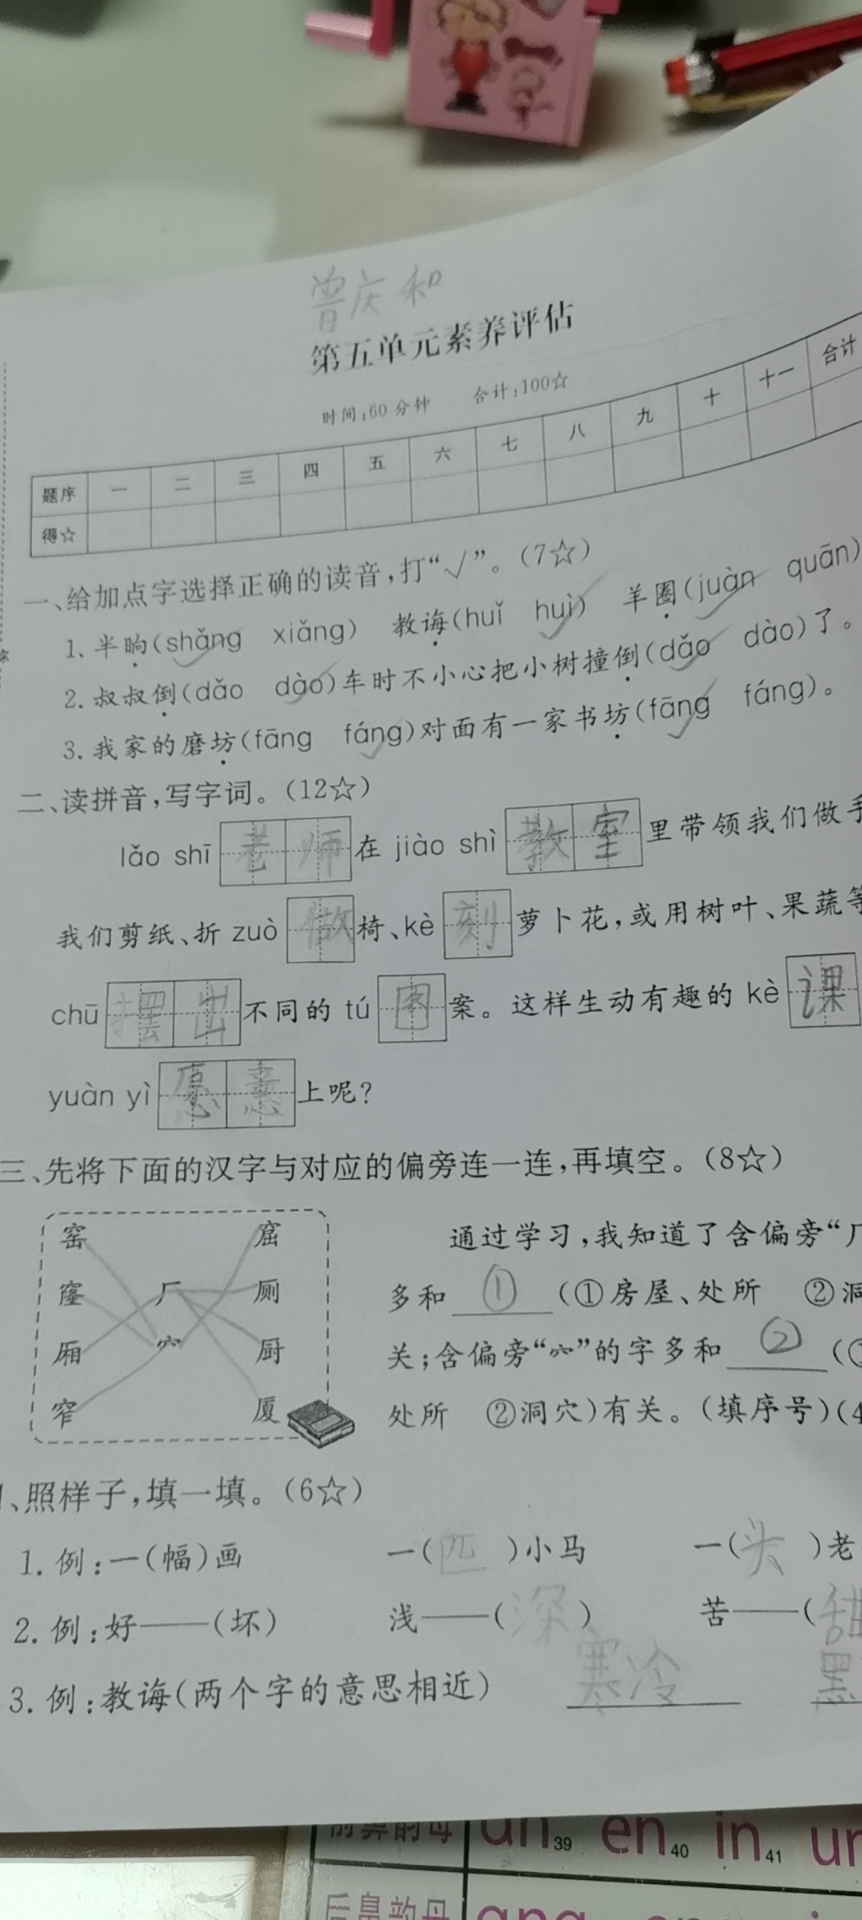 曾庆和
第五单元素养评估
时间:60分钟 合计:100☆
题序 一 二 三 四 五 六 七 八 九 十 十一 合计
得☆
一、给加点字选择正确的读音,打“√”。(7☆)
1. 半晌(shǎng xiǎng) 教诲(huǐ huì) 羊圈(juàn quān)
2. 叔叔倒(dǎo dào)车时不小心把小树撞倒(dǎo dào)了。
3. 我家的磨坊(fāng fáng)对面有一家书坊(fāng fáng)。
二、读拼音,写字词。(12☆)
lǎo shī 老师 在 jiào shì 教室 里带领我们做手
我们剪纸、折 zuò 做 椅、kè 刻 萝卜花,或用树叶、果蔬等
chū 摆出 不同的 tú 图 案。这样生动有趣的 kè 课
yuàn yì 愿意 上呢?
三、先将下面的汉字与对应的偏旁连一连,再填空。(8☆)
窑 窟
窿 厂 厕
厢 穴 厨
窄 厦
通过学习,我知道了含偏旁“厂
多和 ① (①房屋、处所 ②洞
关;含偏旁“穴”的字多和 ② (①
处所 ②洞穴)有关。(填序号)(4
、照样子,填一填。(6☆)
1. 例:一(幅)画 一(匹)小马 一(头)老
2. 例:好——(坏) 浅——(深) 苦——(甜
3. 例:教诲(两个字的意思相近) 寒冷 黑
前鼻韵母 un 39 en 40 in 41 un
后鼻韵母